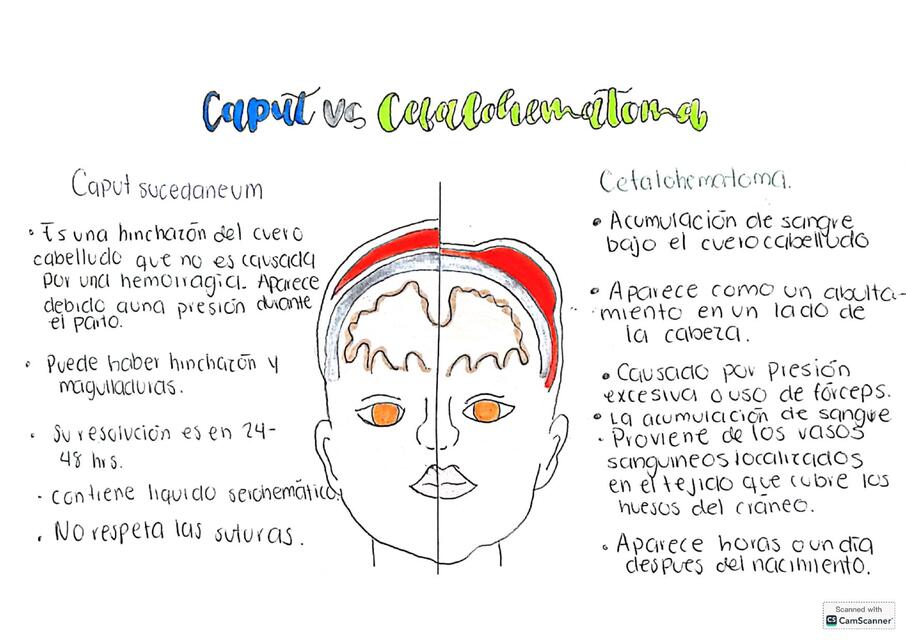 Caput vs Cefalohematoma
Caput sucedaneum
• Es una hinchazón del cuero
cabelludo que no es causada
por una hemorragia. Aparece
debido a una presión durante
el parto.
• Puede haber hinchazón y
magulladuras.
• Su resolución es en 24-
48 hrs.
• contiene liquido serohemático.
• No respeta las suturas.
Cefalohematoma.
• Acumulación de sangre
bajo el cuero cabelludo
• Aparece como un abulta-
miento en un lado de
la cabeza.
• Causado por presión
excesiva o uso de fórceps.
• La acumulación de sangre
• Proviene de los vasos
sanguineos localizados
en el tejido que cubre los
huesos del cráneo.
• Aparece horas o un día
despues del nacimiento.
Scanned with
CS CamScanner